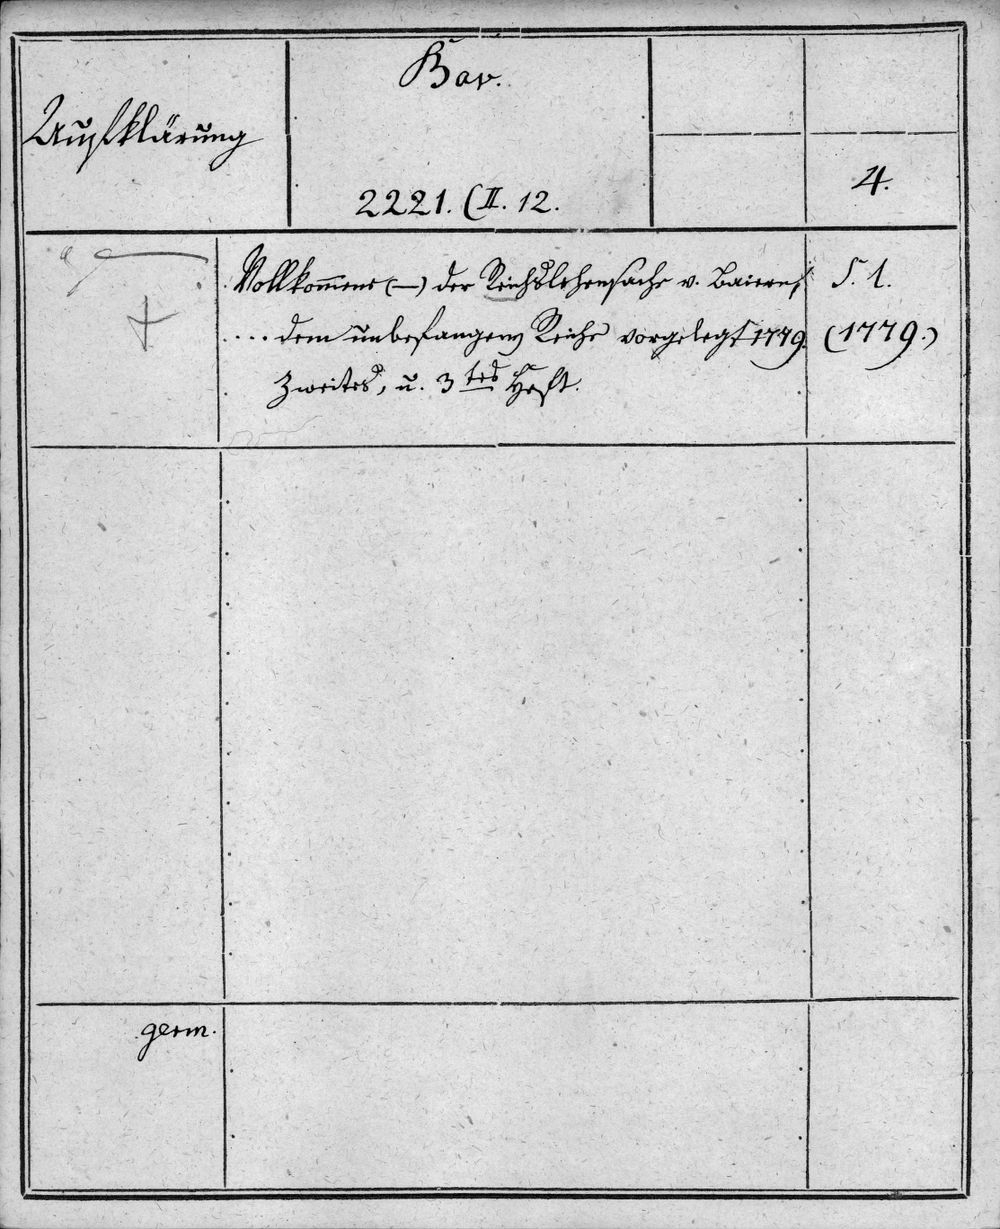 Bav.
Aufklärung
4.
2221. (II. 12.
Vollkommene (—) der Reichslehensache v. Baiern,
S. l.
.... dem unbefangenen Reiche vorgelegt 1779.
(1779.)
Zweites, u. 3tes Heft.
germ.